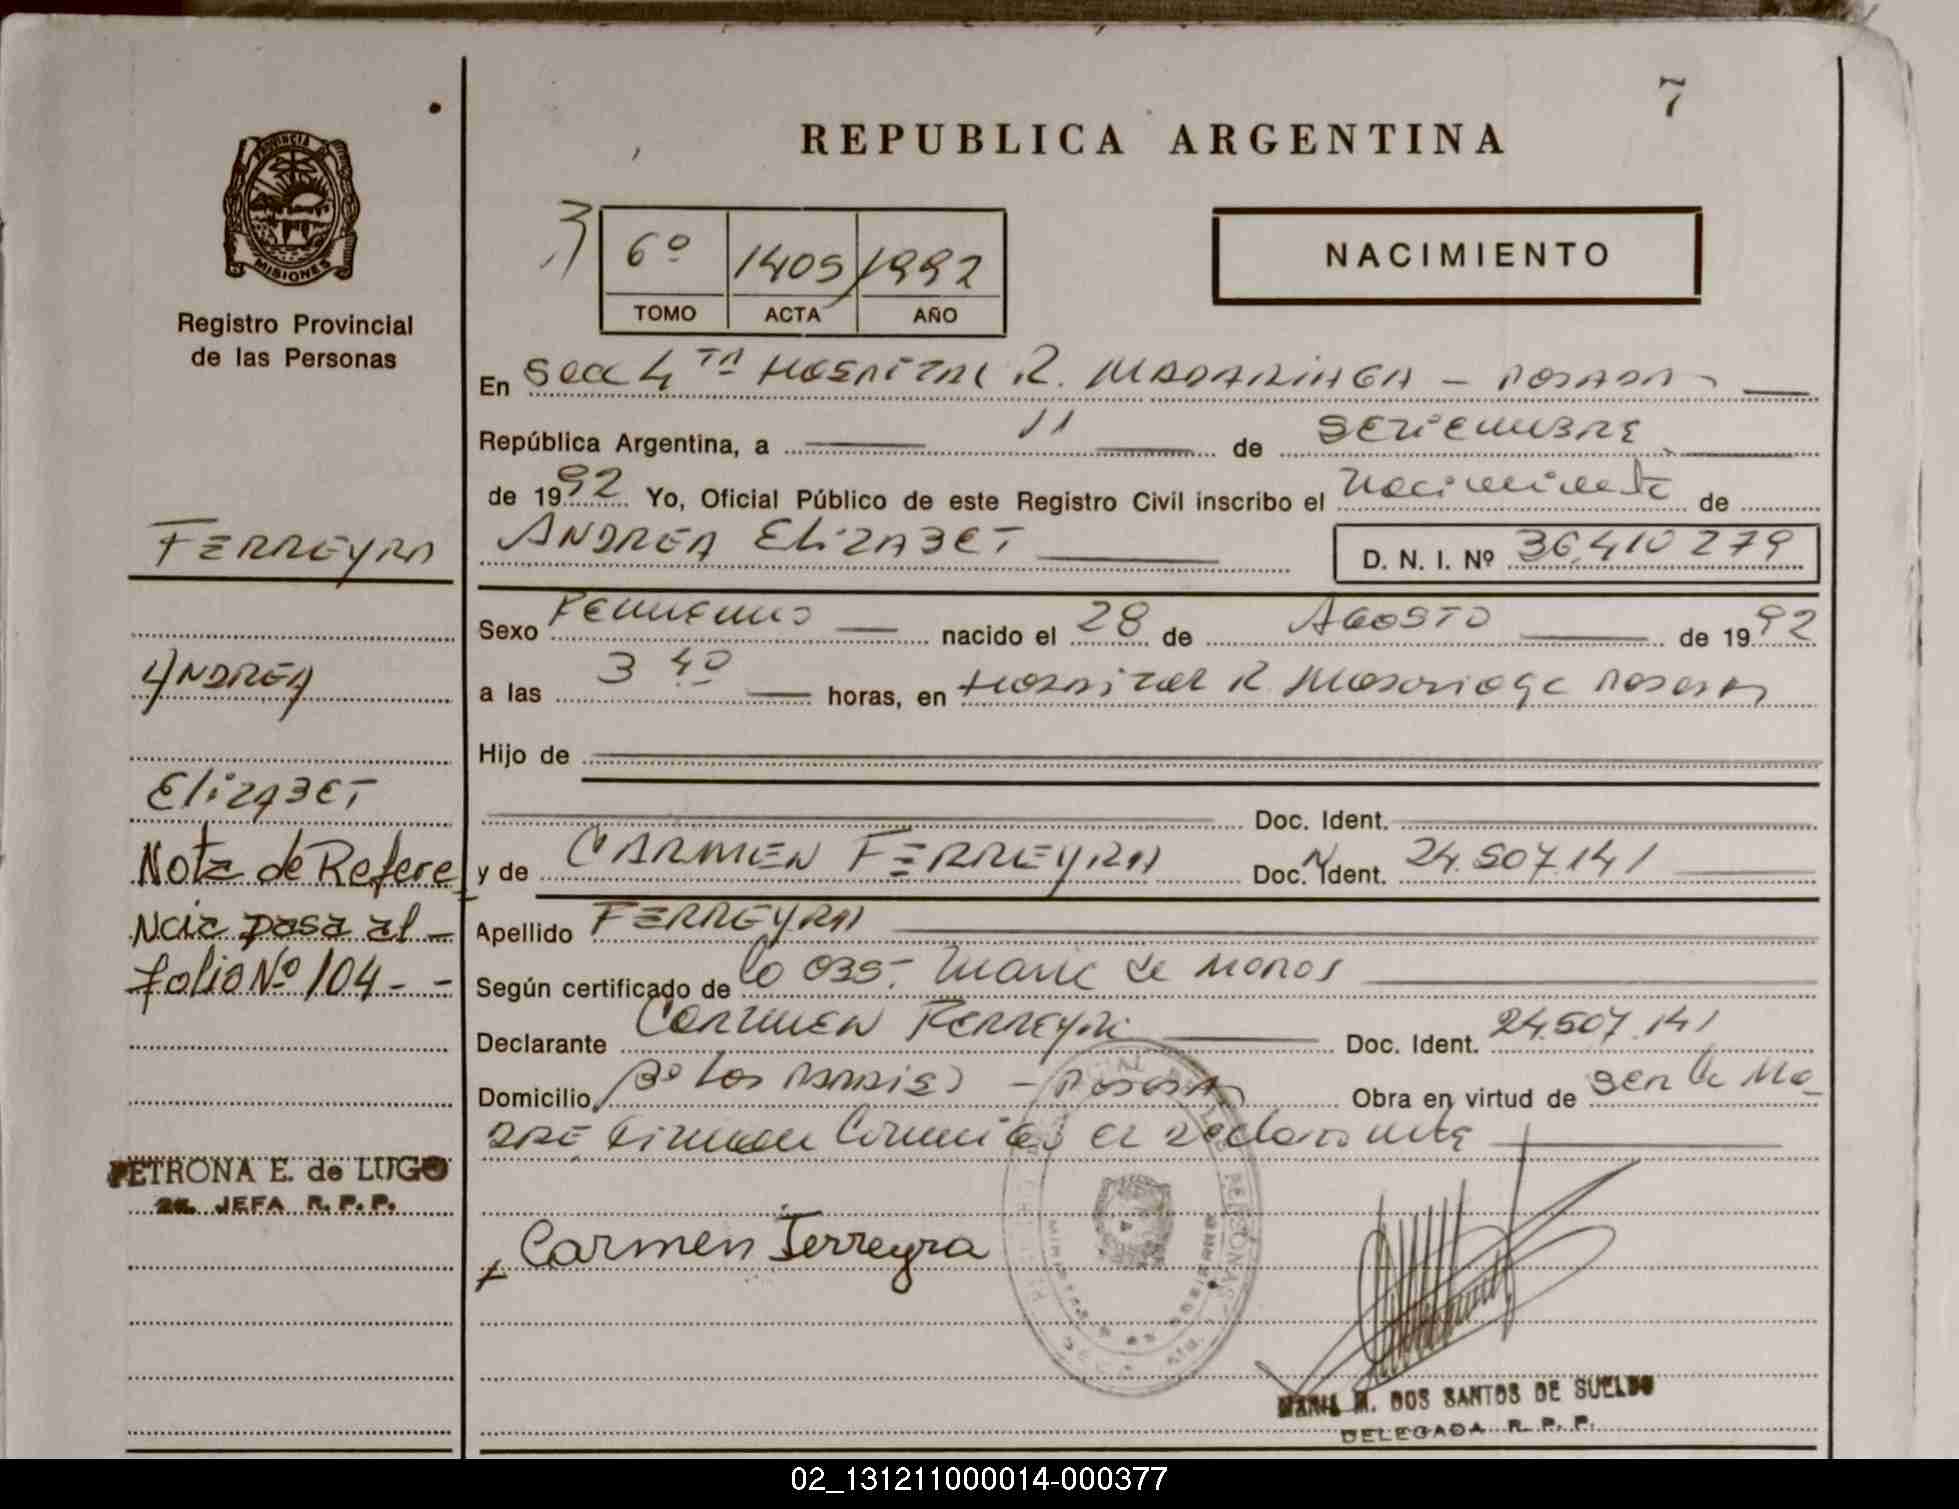 7
REPUBLICA ARGENTINA
PROVINCIA DE
MISIONES
Registro Provincial
de las Personas
6º 1405 1992
TOMO ACTA AÑO
NACIMIENTO
En Secc 4ta HOSPITAL R. MADARIAGA - POSADAS
República Argentina, a 11 de SETIEMBRE
de 1992 Yo, Oficial Público de este Registro Civil inscribo el Nacimiento de
ANDREA ELIZABET D. N. I. Nº 36.410 279
Sexo Femenino nacido el 28 de AGOSTO de 1992
a las 3 40 horas, en Hospital R. Madariaga Posadas
Hijo de
Doc. Ident.
y de CARMEN FERREYRA Doc. Ident. 24.507.141
Apellido FERREYRA
Según certificado de la obs. Marie de
Declarante CARMEN FERREYRA Doc. Ident. 24.507.141
Domicilio Bº Los - Posadas Obra en virtud de ser la Ma
DRE Firman el declarante
Carmen Ferreyra
MARIA M. DOS SANTOS DE SUELDO
DELEGADA R. P. P.
FERREYRA
ANDREA
ELIZABET
Nota de Refere
Ncia pasa al -
folio Nº 104 - -
PETRONA E. de LUGO
JEFA R. P. P.
02_131211000014-000377